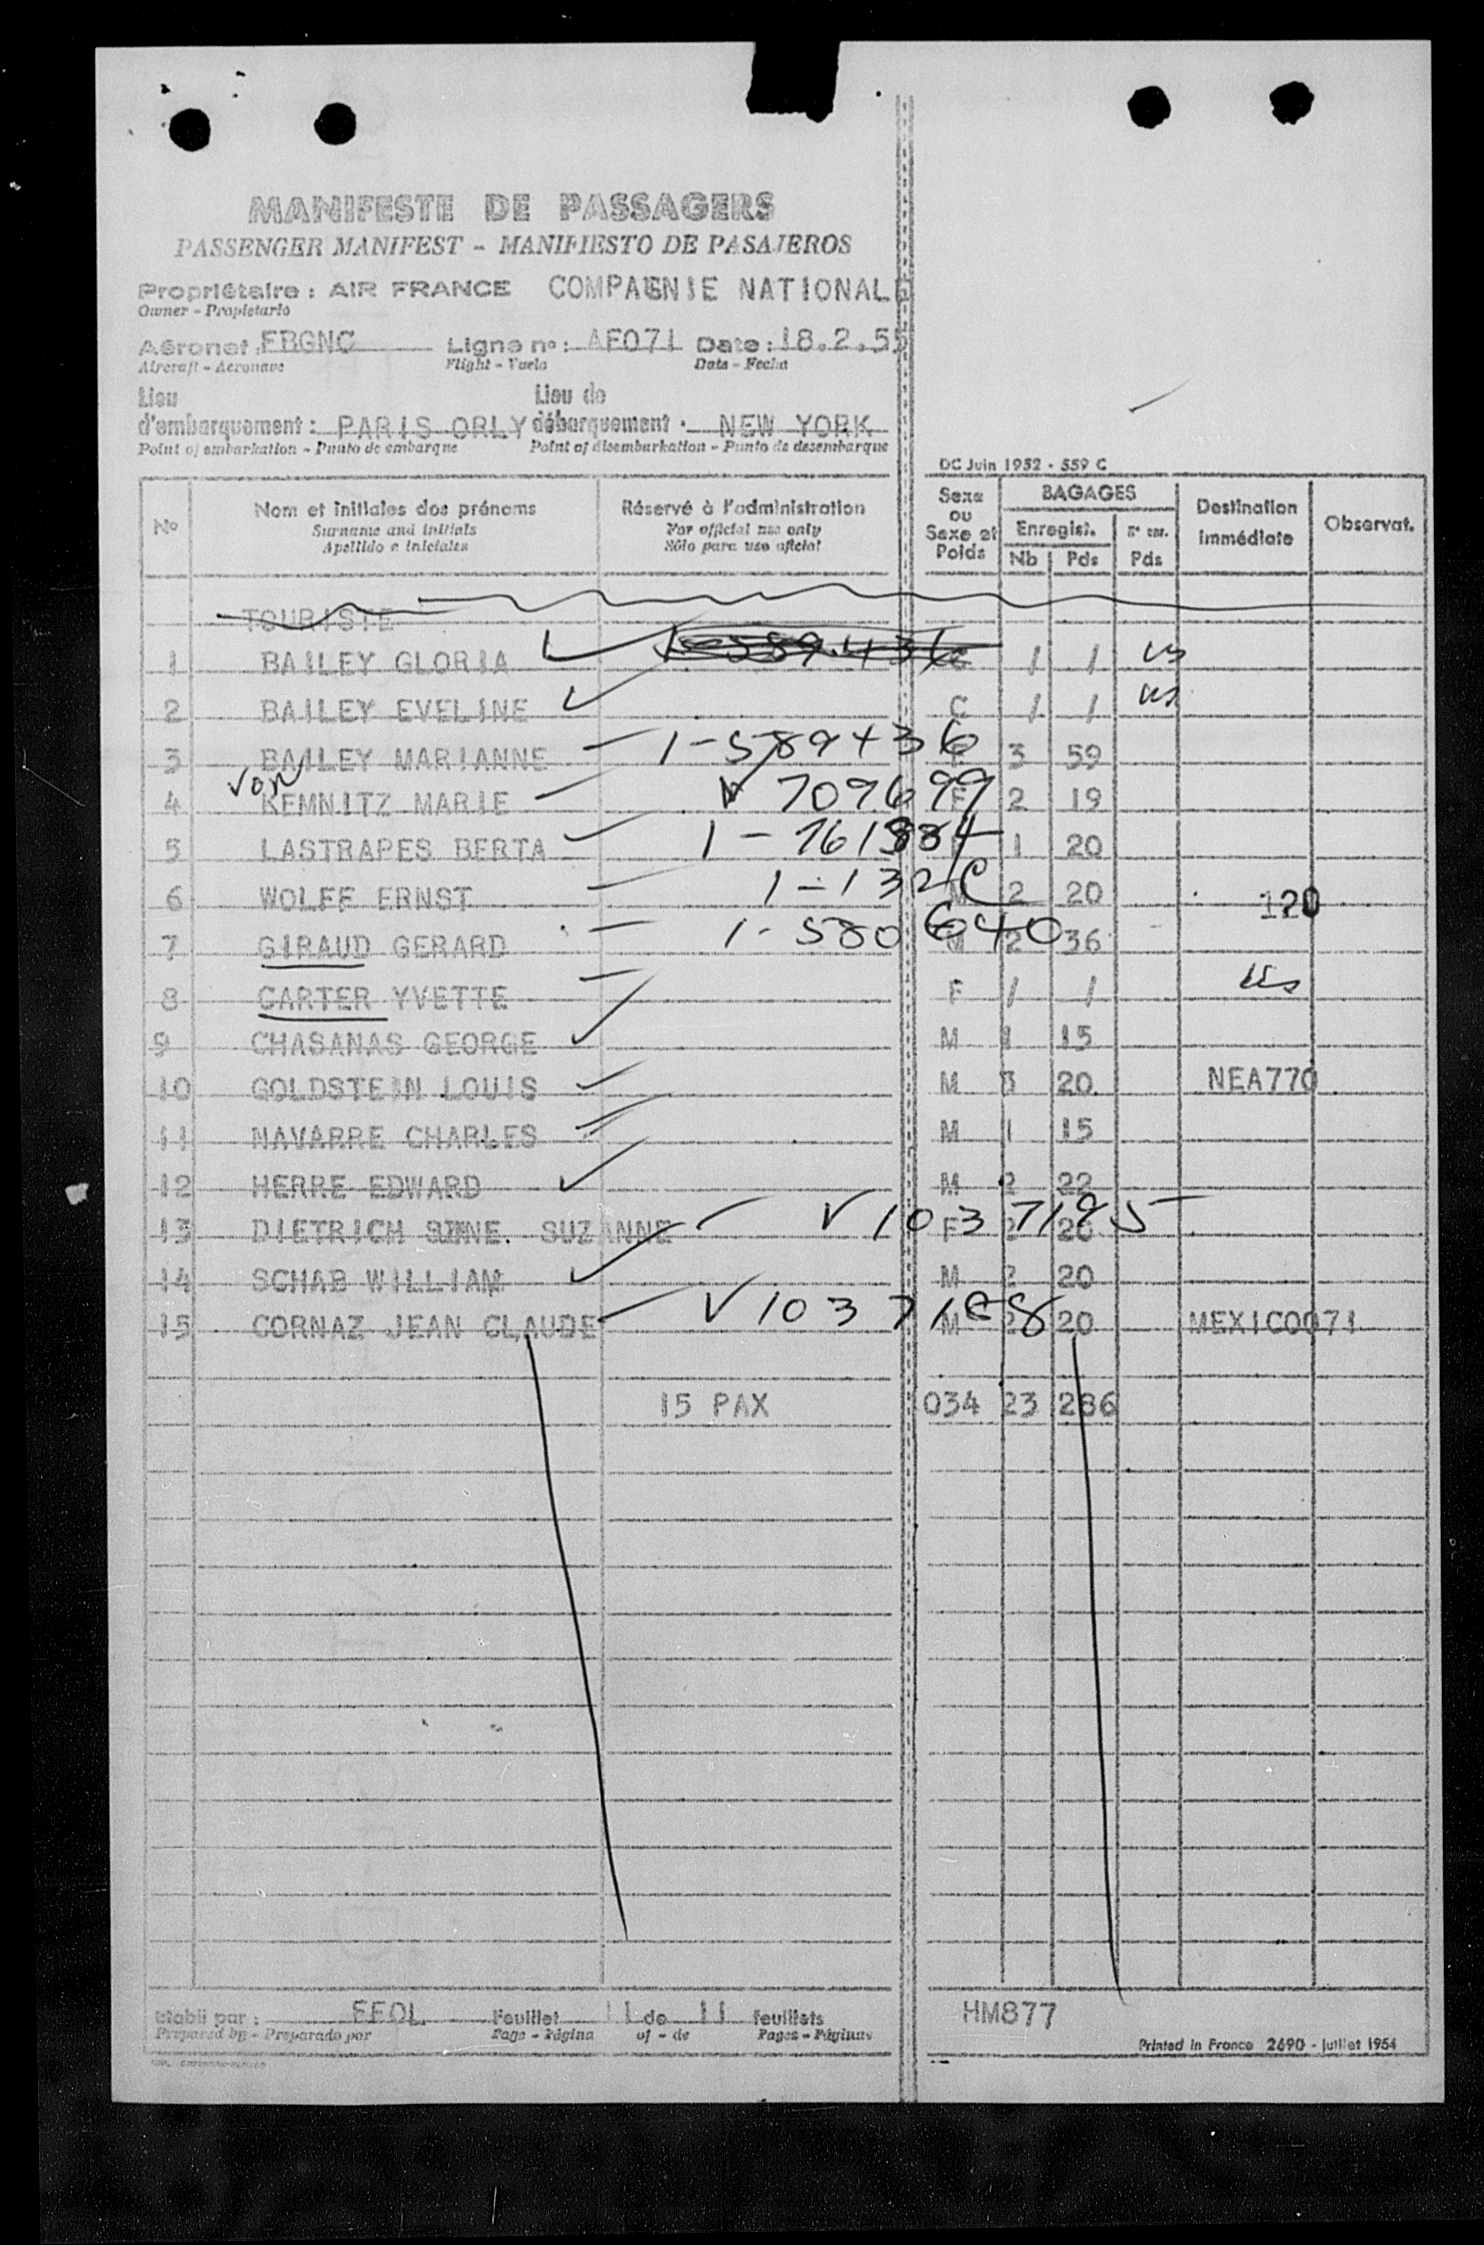 MANIFESTE DE PASSAGERS
PASSENGER MANIFEST - MANIFIESTO DE PASAJEROS
Propriétaire : AIR FRANCE COMPAGNIE NATIONALE
Owner - Propietario
Aéronef : FBGNC Ligne n° : AF071 Date : 18.2.55
Aircraft - Aeronave Flight - Vuelo Data - Fecha
Lieu d'embarquement : PARIS ORLY Lieu de débarquement : NEW YORK
Point of embarkation - Punto de embarque Point of disembarkation - Punto de desembarque
DC Juin 1952 - 559 C
N° Nom et initiales des prénoms Réservé à l'administration Sexe ou Sexe et Poids BAGAGES Destination immédiate Observat.
Surname and initials For official use only Enregist.
Apellido e iniciales Sólo para uso oficial Nb Pds Pds
TOURISTE
1 BAILEY GLORIA 1-589436 C / / us
2 BAILEY EVELINE C / / us
3 BAILEY MARIANNE 1-589436 F 3 59
4 von KEMNITZ MARIE V 709699 F 2 19
5 LASTRAPES BERTA 1-761884 1 20
6 WOLFF ERNST 1-132 C M 2 20 120
7 GIRAUD GERARD 1-580640 M 2 36
8 CARTER YVETTE F / / us
9 CHASANAS GEORGE M 1 15
10 GOLDSTEIN LOUIS M 3 20 NEA770
11 NAVARRE CHARLES M 1 15
12 HERRE EDWARD M 2 22
13 DIETRICH SUZANNE V 1037185 F 2 20
14 SCHAB WILLIAM M 2 20
15 CORNAZ JEAN CLAUDE V 1037188 M 2 20 MEXICO071
15 PAX 034 23 286
Etabli par : FFOL Feuillet 11 de 11 feuillets HM877
Prepared by - Preparado por Page - Página of - de Pages - Páginas
Printed in France 2690 - Juillet 1954